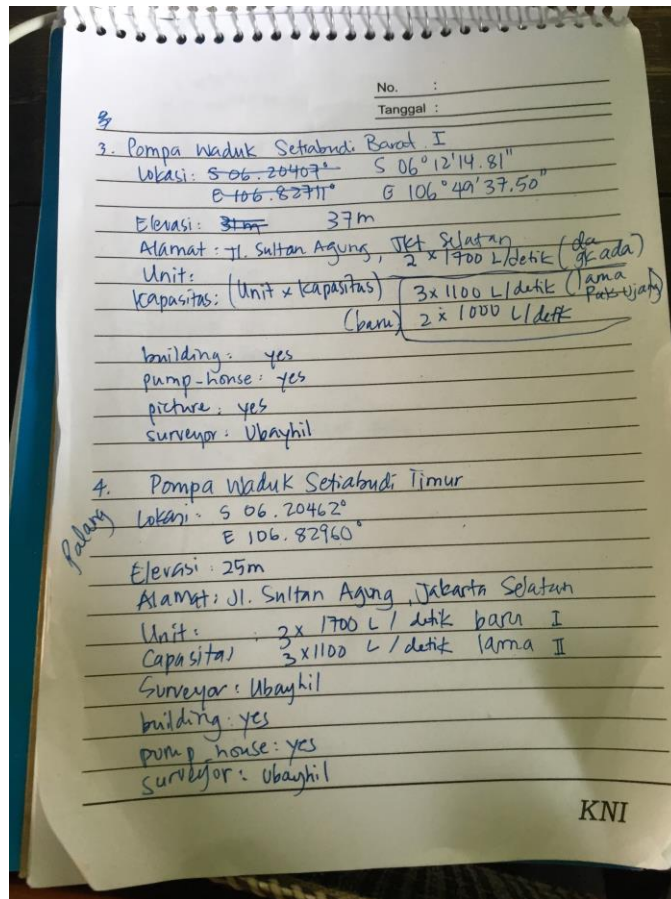 No. :
Tanggal :
3. Pompa Waduk Setiabudi Barat I
Lokasi: S 06.20407° S 06°12'14.81"
E 106.82711° E 106°49'37.50"
Elevasi: 31m 37m
Alamat: Jl. Sultan Agung, Jkt Selatan
Unit: 2 x 1700 L/detik (da gk ada)
Kapasitas: (Unit x kapasitas) 3x1100 L/detik (lama Pak Ujang)
(baru) 2 x 1000 L/detik
building: yes
pump-house: yes
picture: yes
surveyor: Ubayhil
4. Pompa Waduk Setiabudi Timur
Palang
Lokasi: S 06.20462°
E 106.82960°
Elevasi: 25m
Alamat: Jl. Sultan Agung, Jakarta Selatan
Unit: : 3x 1700 L/detik baru I
Capasitas 3x1100 L/detik lama II
Surveyor: Ubayhil
building: yes
pump_house: yes
surveyor: Ubayhil
KNI